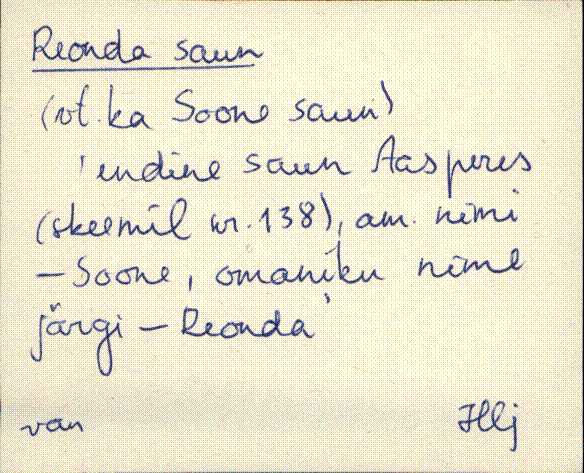 Reonda saun
(vt. ka Soone saun)
'endine saun Aasperes
(skeemil nr. 138), am. nimi
– Soone, omaniku nime
järgi – Reonda'
van Hlj